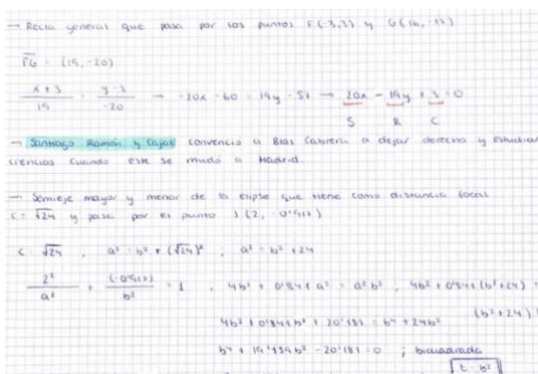 → Recta general que pasa por los puntos F(-3,3) y G(16,-17)
FG = (19, -20)
x+3/19 = y-3/-20 → -20x - 60 = 19y - 57 → 20x + 19y + 3 = 0
S R C
→ Santiago Ramón y Cajal convenció a Blas Cabrera a dejar derecho y estudiar
ciencias cuando este se mudó a Madrid.
→ Semieje mayor y menor de la elipse que tiene como distancia focal
c = √24 y pasa por el punto (2,
c = √24, a² = b² + (√24)², a² = b² + 24
2²/a² + b² = 1, 4b² + 0'841a² = a²b², 4b² + 0'841(b²+24) =
(b²+24)
4b² + 0'841b² + 20'181 = b⁴ + 24b²
b⁴ + 19'159b² - 20'181 = 0 ; bicuadrada
t = b²